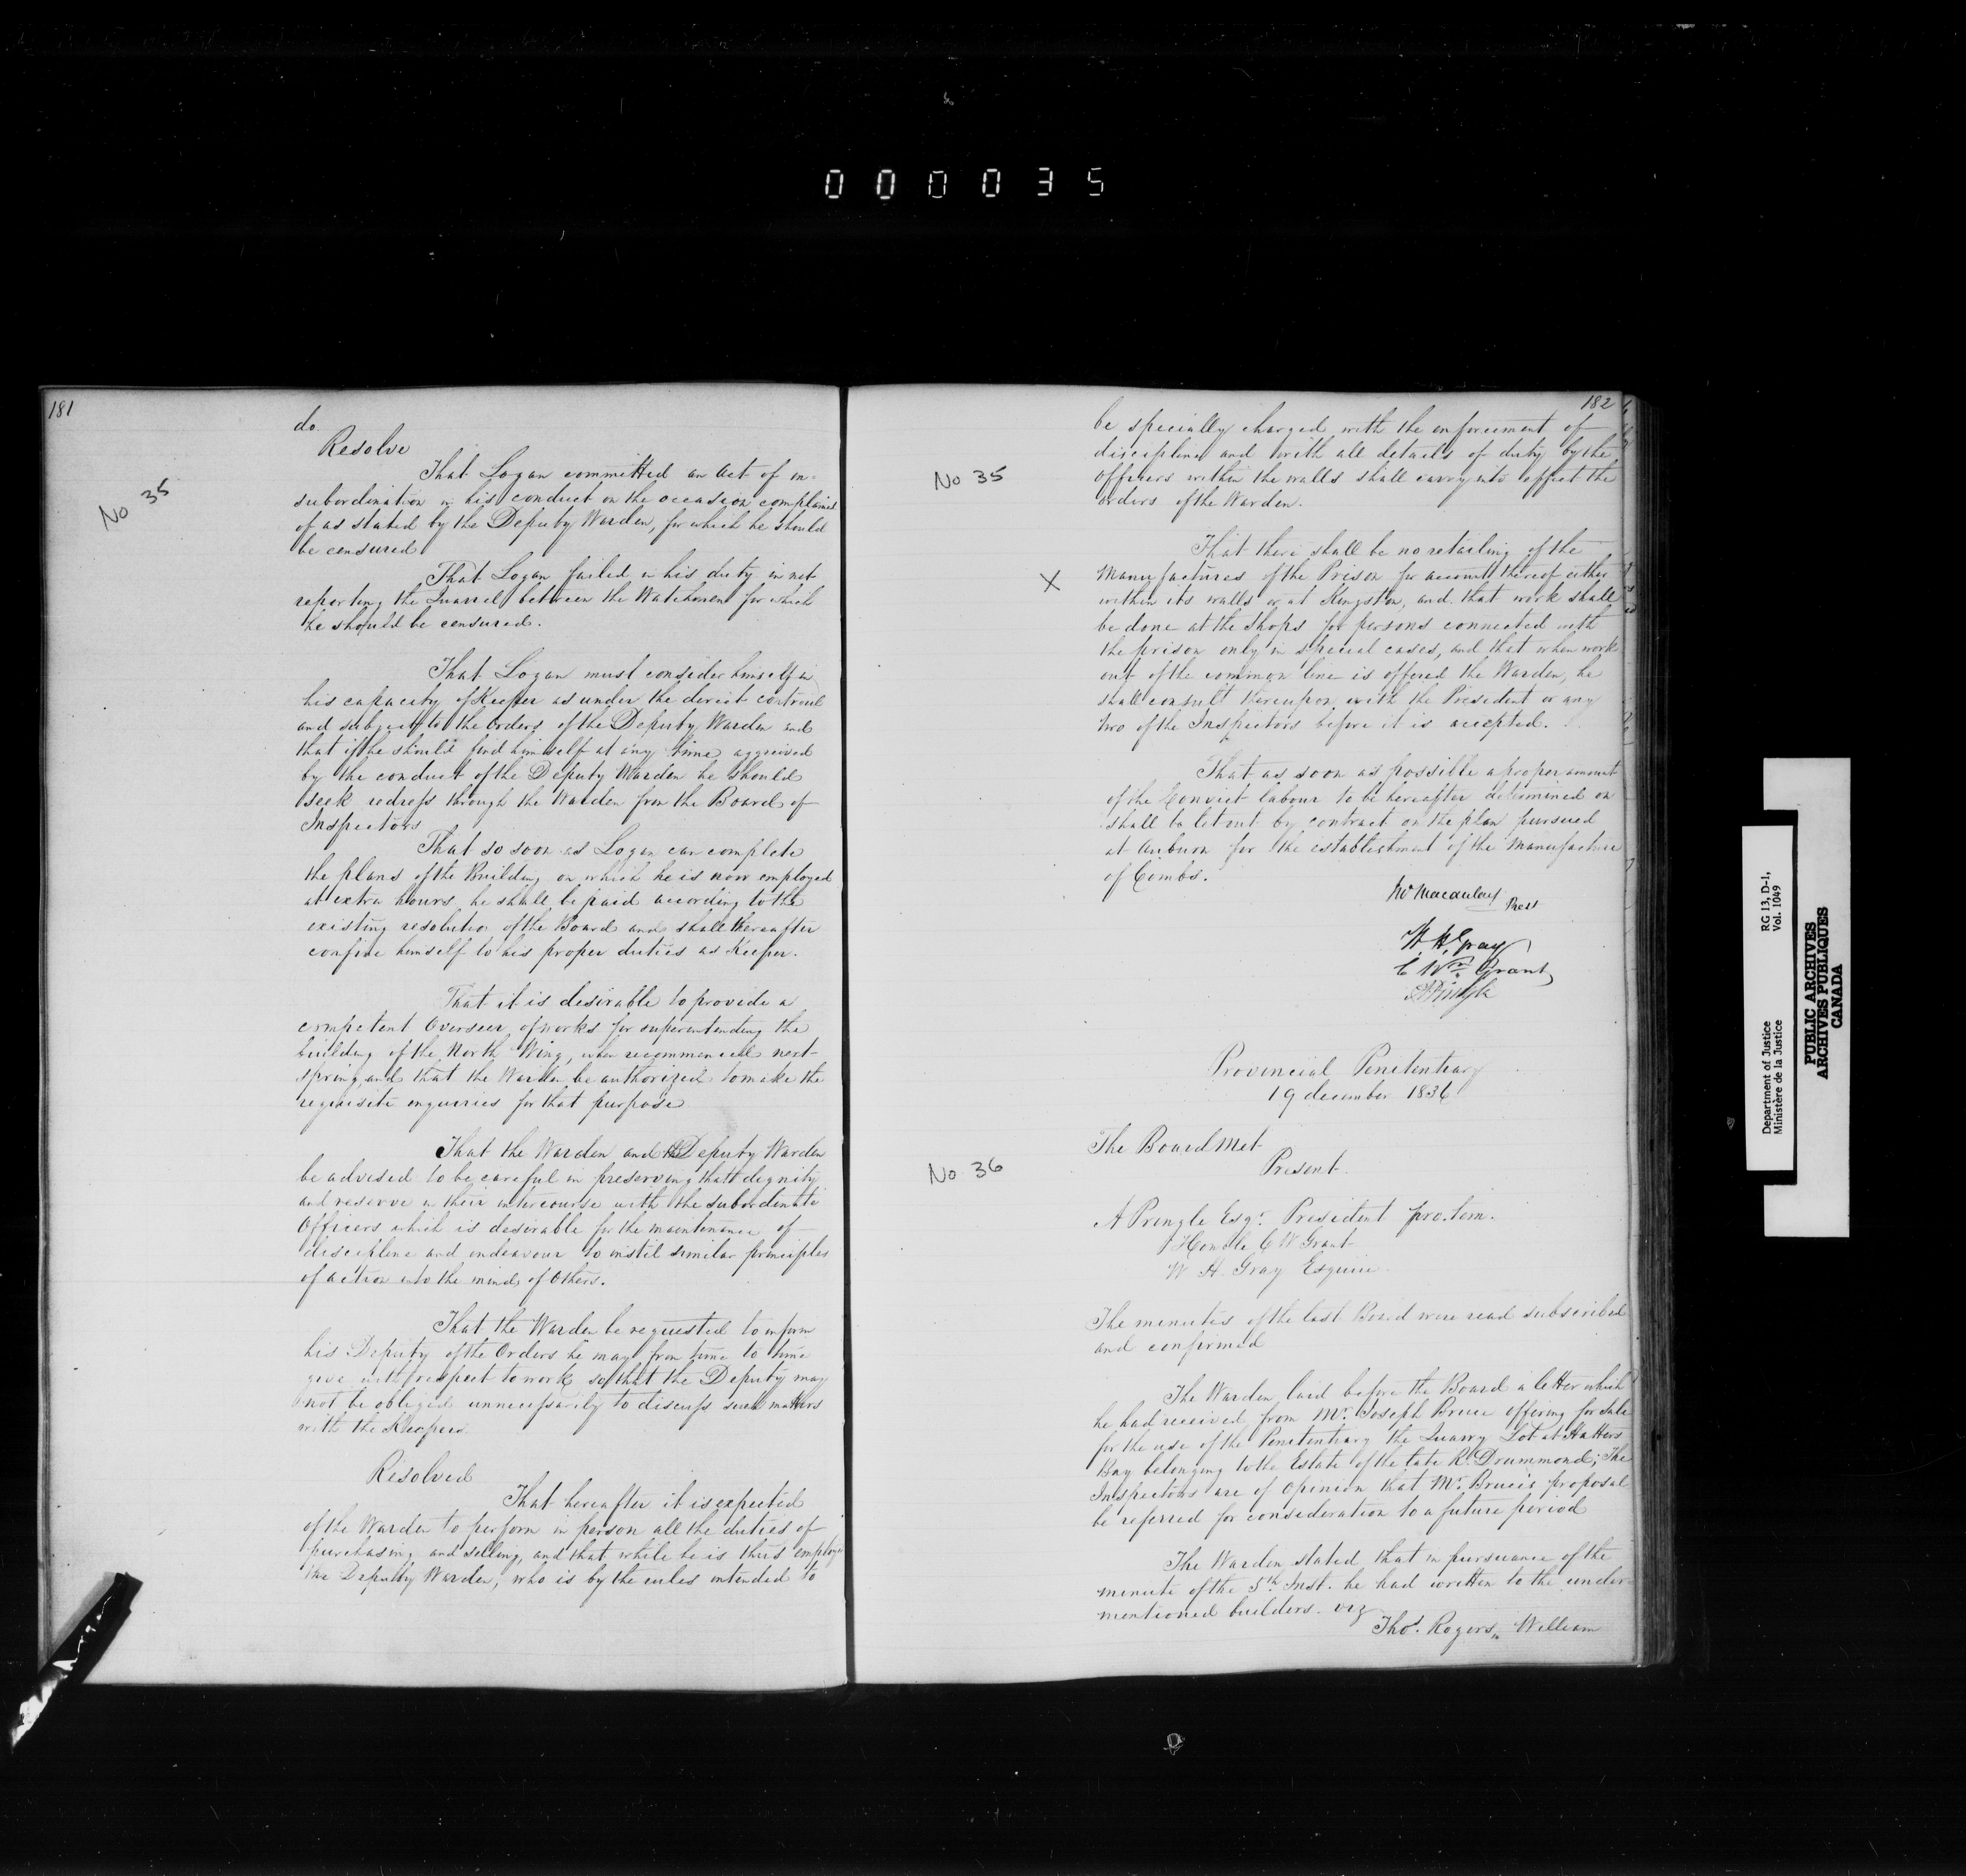 000035
181
No 35
do.
Resolve
That Logan committed an act of in=
subordination in his conduct on the occasion complained
of as stated by the Deputy Warden, for which he should
be censured
That Logan failed in his duty in not
reporting the Quarrel between the Watchmen for which
he should be censured.
That Logan must consider himself in
his capacity of Keeper as under the direct controul
and subject to the Orders of the Deputy Warden and
that if he should find himself at any time aggrieved
by the conduct of the Deputy Warden he should
seek redress through the Warden from the Board of
Inspectors
That so soon as Logan can complete
the plans of the Building on which he is now employed
at extra hours, he shall be paid according to the
existing resolution of the Board and shall thereafter
confine himself to his proper duties as Keeper.
That it is desirable to provide a
competent Overseer of works for superintending the
building of the North Wing, when recommenced next
spring, and that the Warden be authorized to make the
requisite enquiries for that purpose
That the Warden and the Deputy Warden
be advised to be careful in preserving that dignity
and reserve in their intercourse with the subordinate
Officers which is desirable for the maintenance of
discipline and endeavour to instil similar principles
of action into the minds of Others.
That the Warden be requested to inform
his Deputy of the Orders he may from time to time
give with respect to work so that the Deputy may
not be obliged unnecessarily to discuss such matters
with the Keepers
Resolved
That hereafter it is expected
of the Warden to perform in person all the duties of
purchasing and selling, and that while he is thus employed
the Deputy Warden, who is by the rules intended to
182
No 35
be specially charged with the enforcement of
discipline and with all details of duty by the
officers within the walls shall carry into effect the
orders of the Warden.
That there shall be no retailing of the
X
Manufactures of the Prison for account thereof either
within its walls or at Kingston, and that work shall
be done at the Shops for persons connected with
the prison only in special cases, and that when work
out of the common line is offered the Warden, he
shall consult thereupon with the President or any
two of the Inspectors before it is accepted.
That as soon as possible a proper amount
of the Convict labour to be hereafter determined on
shall be let out by contract on the plan pursued
at Auburn for the establishment of the Manufacture
of Combs.
Jno Macaulay Prest
W. H. Gray
C Wm Grant
A Pringle
Provincial Penitentiary
19 december 1836
No 36
The Board Met
Present.
A Pringle Esqr. President pro. tem.
Honble C W Grant
W H. Gray Esquire.
The minutes of the last Board were read subscribed
and confirmed
The Warden laid before the Board a letter which
he had received from Mr. Joseph Bruce offering for Sale
for the use of the Penitentiary the Quarry Lot at Hatters
Bay belonging to the Estate of the late R. Drummond; The
Inspectors are of Opinion that Mr. Bruce's proposal
be referred for consideration to a future period
The Warden stated that in pursuance of the
minute of the 5th. Inst. he had written to the under-
mentioned builders. viz
Thos. Rogers, William
Department of Justice
Ministère de la Justice
RG 13, D-1,
Vol. 1049
PUBLIC ARCHIVES
ARCHIVES PUBLIQUES
CANADA